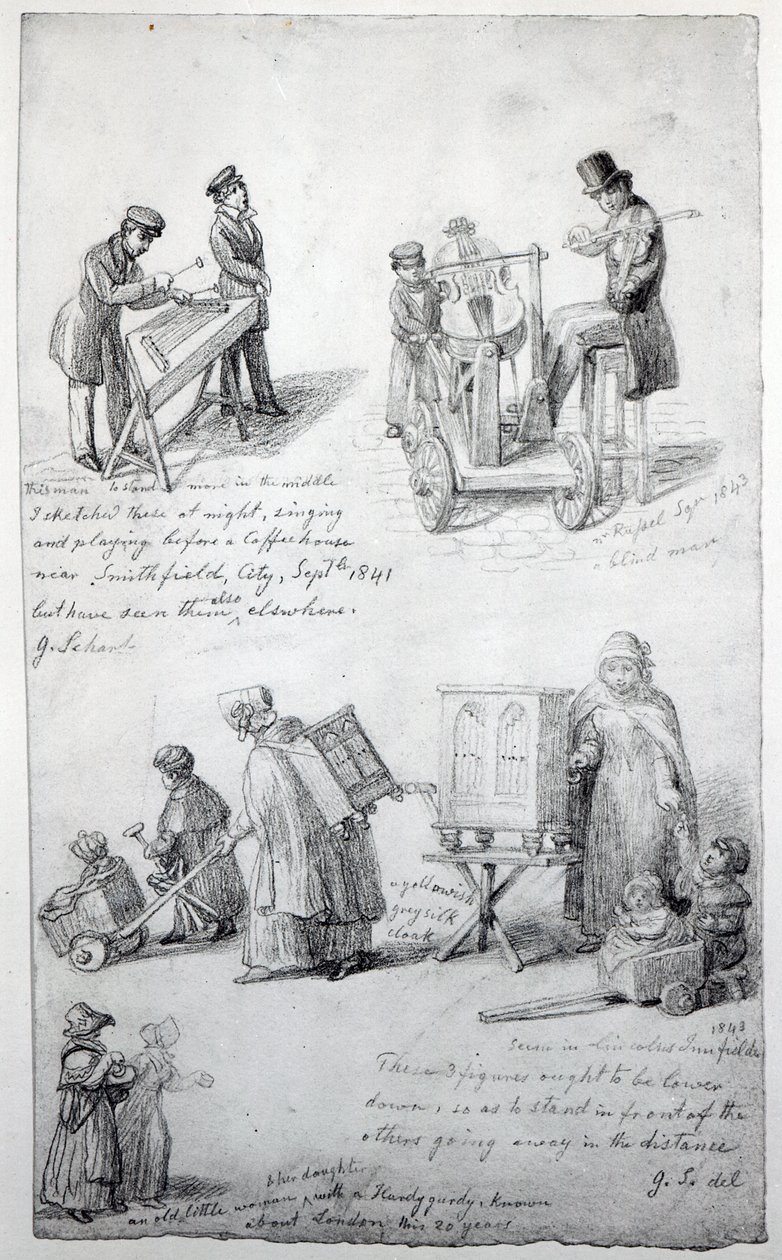 This man to stand more in the middle
I sketched these at night, singing
and playing before a Coffeehouse
near Smithfield, City, Septbr 1841
but have seen them also elswhere.
G. Scharf
nr Russel Sqr 1843
a blind man
a yellowish
grey silk
cloak
1843
Seen in Lincolns Innfields
These 3 figures ought to be lower
down, so as to stand in front of the
others going away in the distance
G. S. del
& her daughter
an old little woman with a Hurdy gurdy, known
about London, this 20 years